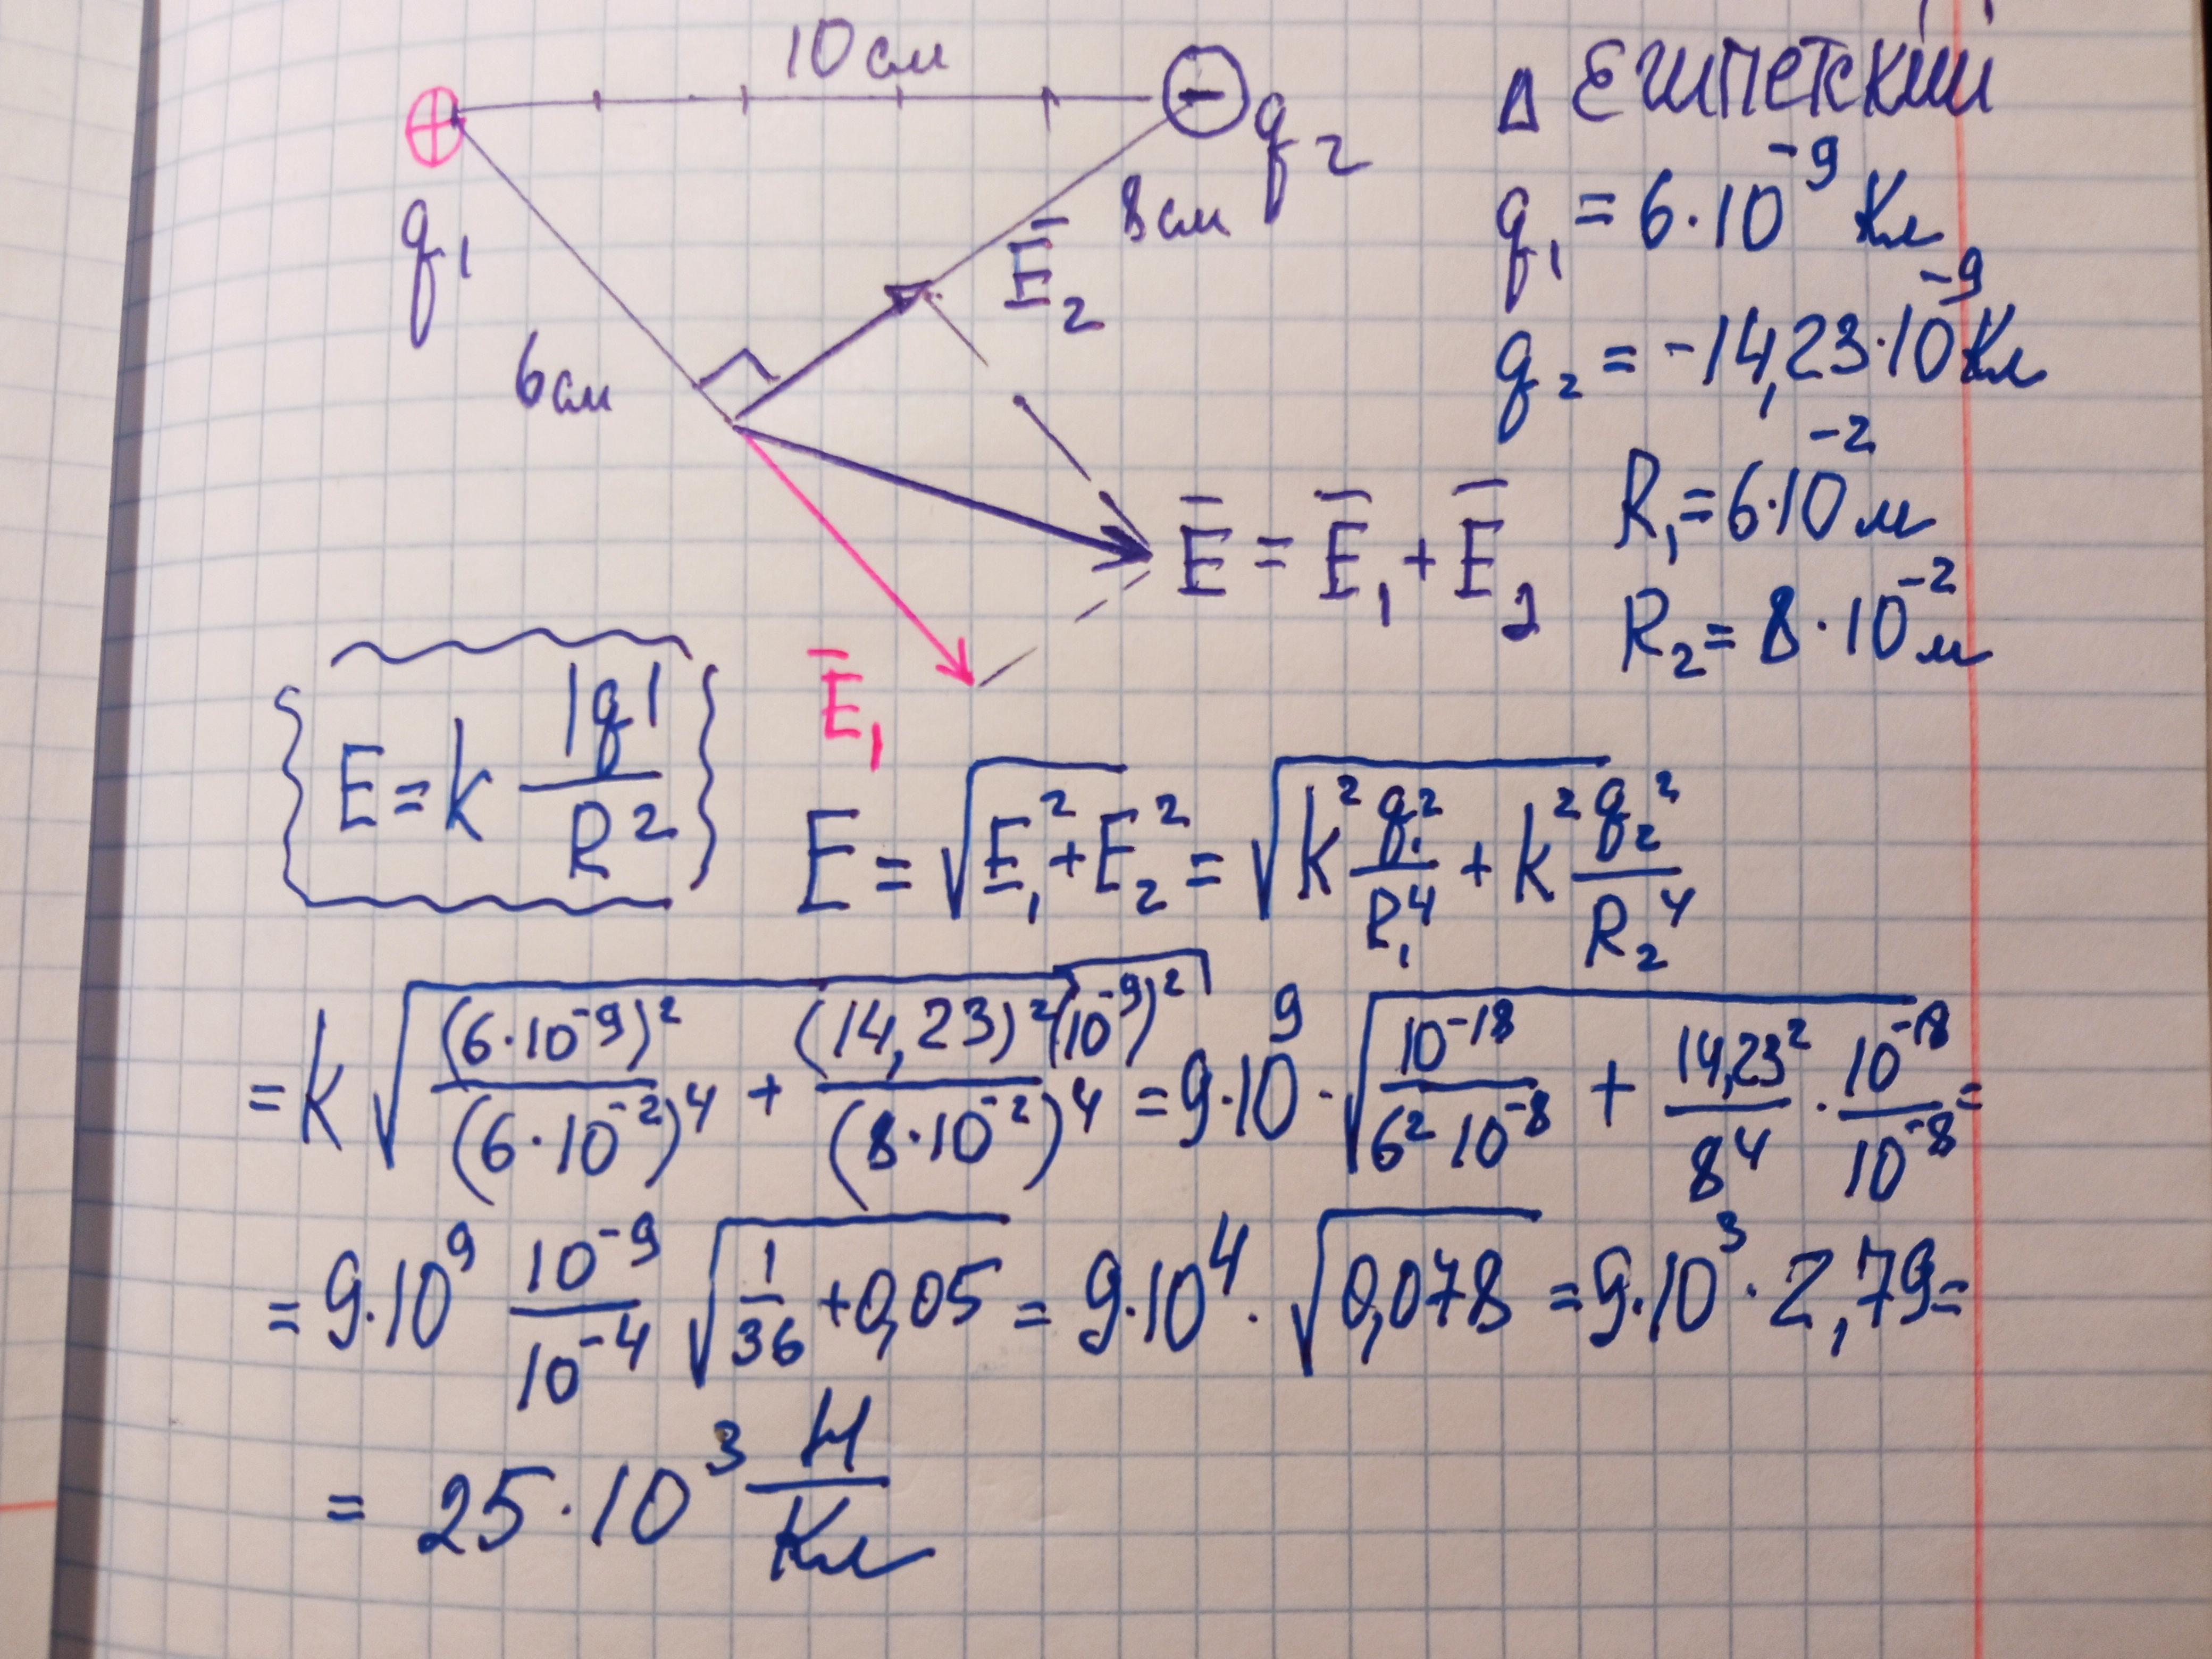 10 см
⊕
⊖
q₁
q₂
6 см
8 см
E̅₂
E̅₁
E̅ = E̅₁ + E̅₂
Δ ЕГИПЕТСКИЙ
q₁ = 6·10⁻⁹ Кл
q₂ = -14,23·10⁻⁹ Кл
R₁ = 6·10⁻² м
R₂ = 8·10⁻² м
E = k |q|/R²
E = √(E₁² + E₂²) = √(k² q₁²/R₁⁴ + k² q₂²/R₂⁴)
= k √((6·10⁻⁹)²/(6·10⁻²)⁴ + (14,23)²(10⁻⁹)²/(8·10⁻²)⁴) = 9·10⁹ · √(10⁻¹⁸/(6² 10⁻⁸) + 14,23²/8⁴ · 10⁻¹⁸/10⁻⁸) =
= 9·10⁹ 10⁻⁹/10⁻⁴ √(1/36 + 0,05) = 9·10⁴ · √(0,078) = 9·10³ · 2,79 =
= 25·10³ Н/Кл